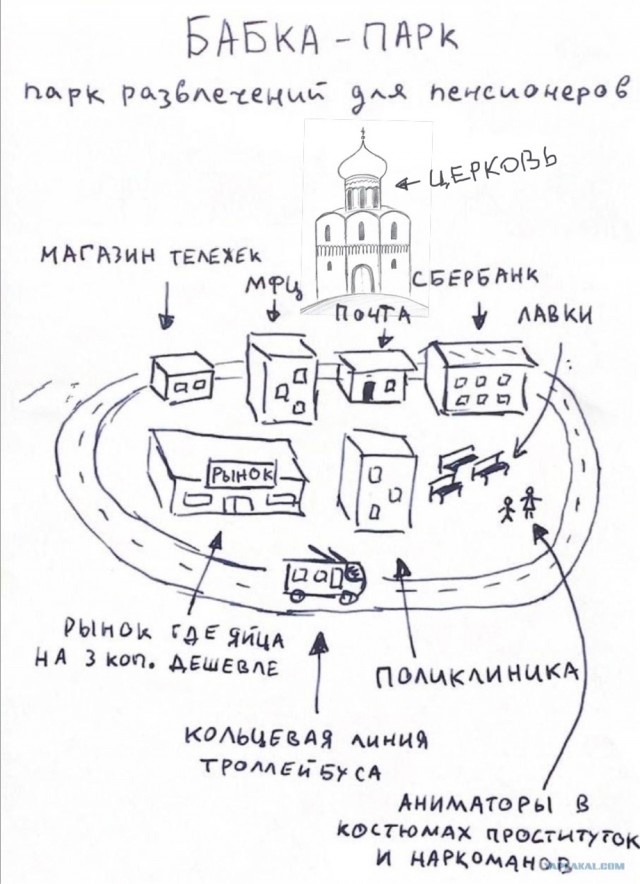 БАБКА-ПАРК
парк развлечений для пенсионеров
ЦЕРКОВЬ
МАГАЗИН ТЕЛЕЖЕК
МФЦ
ПОЧТА
СБЕРБАНК
ЛАВКИ
РЫНОК
РЫНОК ГДЕ ЯЙЦА
НА 3 КОП. ДЕШЕВЛЕ
ПОЛИКЛИНИКА
КОЛЬЦЕВАЯ ЛИНИЯ
ТРОЛЛЕЙБУСА
АНИМАТОРЫ В
КОСТЮМАХ ПРОСТИТУТОК
И НАРКОМАНОВ
YAPLAKAL.COM